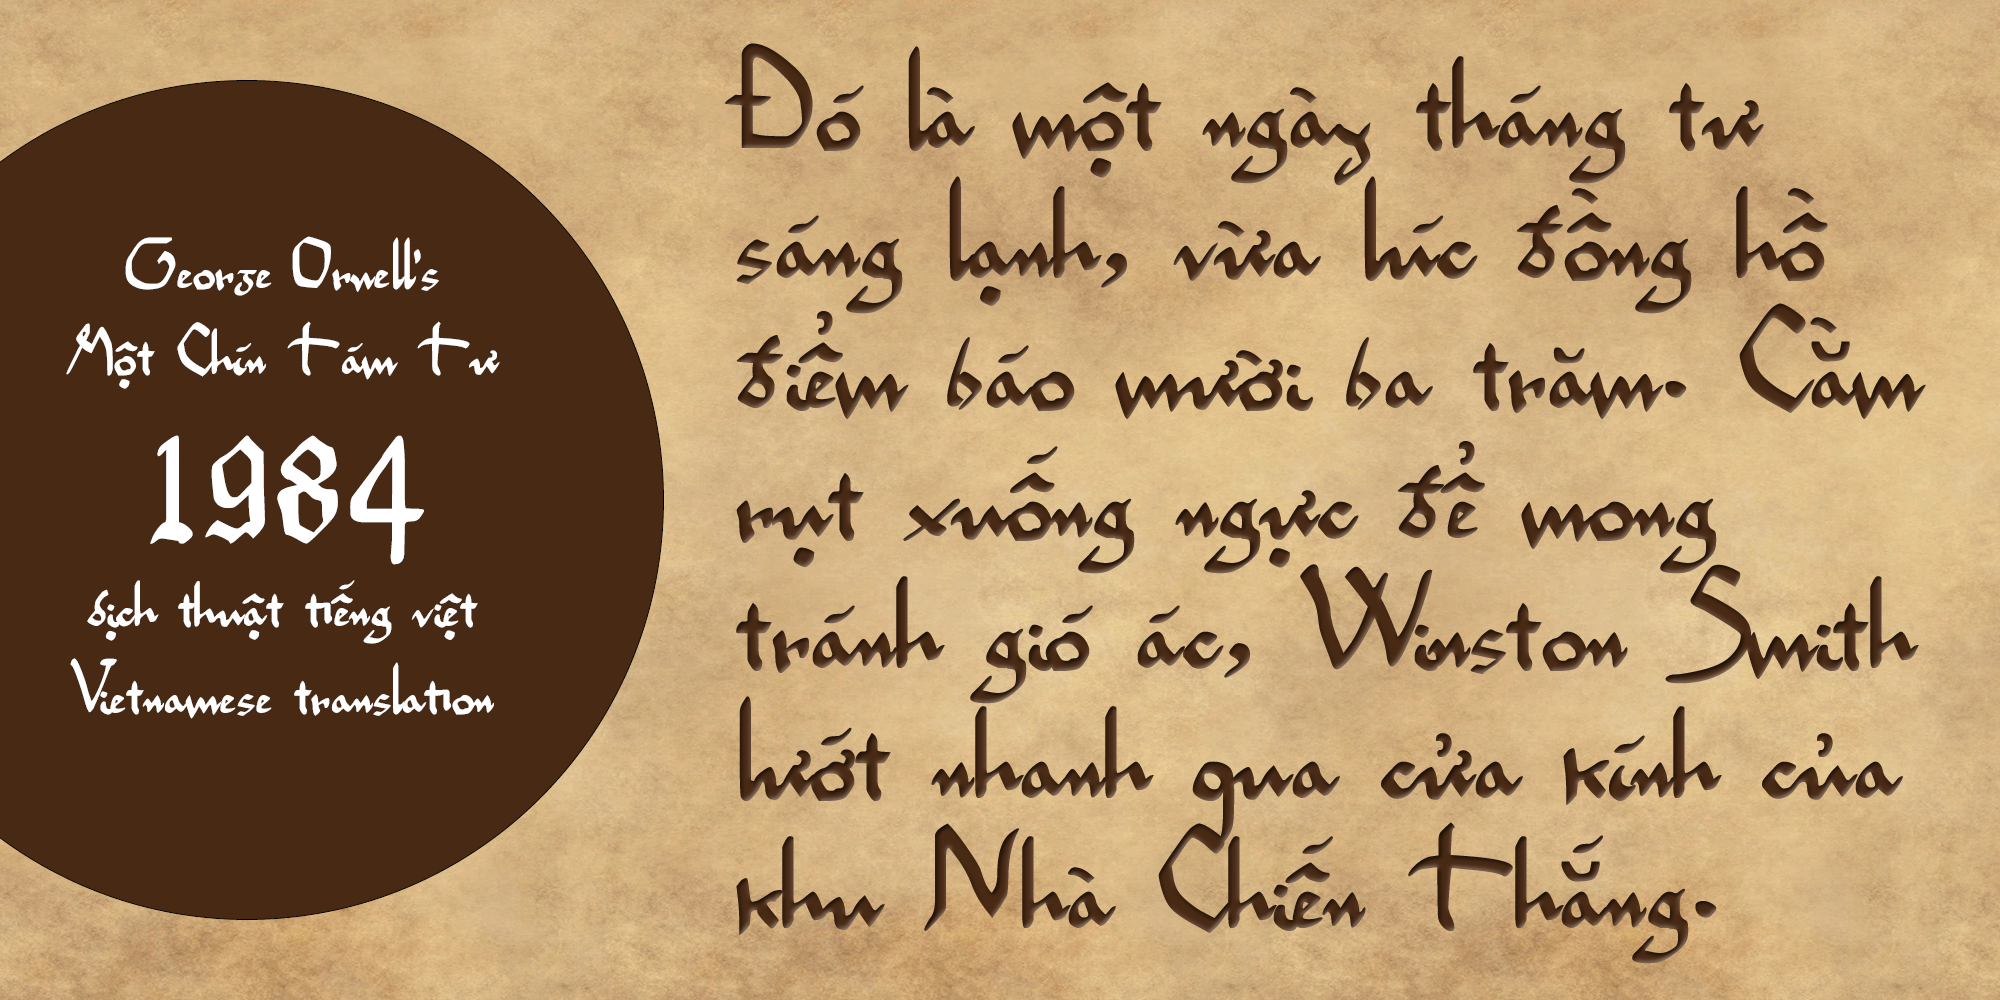 George Orwell's
Một Chín Tám Tư
1984
dịch thuật tiếng việt
Vietnamese translation
Đó là một ngày tháng tư
sáng lạnh, vừa lúc đồng hồ
điểm báo mười ba trăm. Cằm
rụt xuống ngực để mong
tránh gió ác, Winston Smith
lướt nhanh qua cửa kính của
khu Nhà Chiến Thắng.